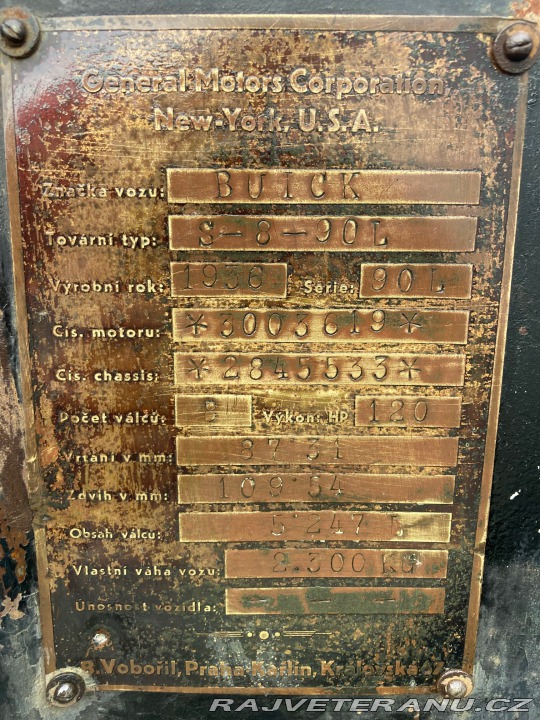 General Motors Corporation,
New-York, U.S.A.
Značka vozu: BUICK
Tovární typ: S-8-90L
Výrobní rok: 1936 Serie: 90L
Čís. motoru: *3003619*
Čís. chassis: *2845533*
Počet válců: 8 Výkon: HP 120
Vrtání v mm: 87'31
Zdvih v mm: 109'54
Obsah válců: 5'247 L
Vlastní váha vozu: 2.300 KG
Únosnost vozidla: - - -
B. Vobořil, Praha-Karlín, Královská
RAJVETERANU.CZ